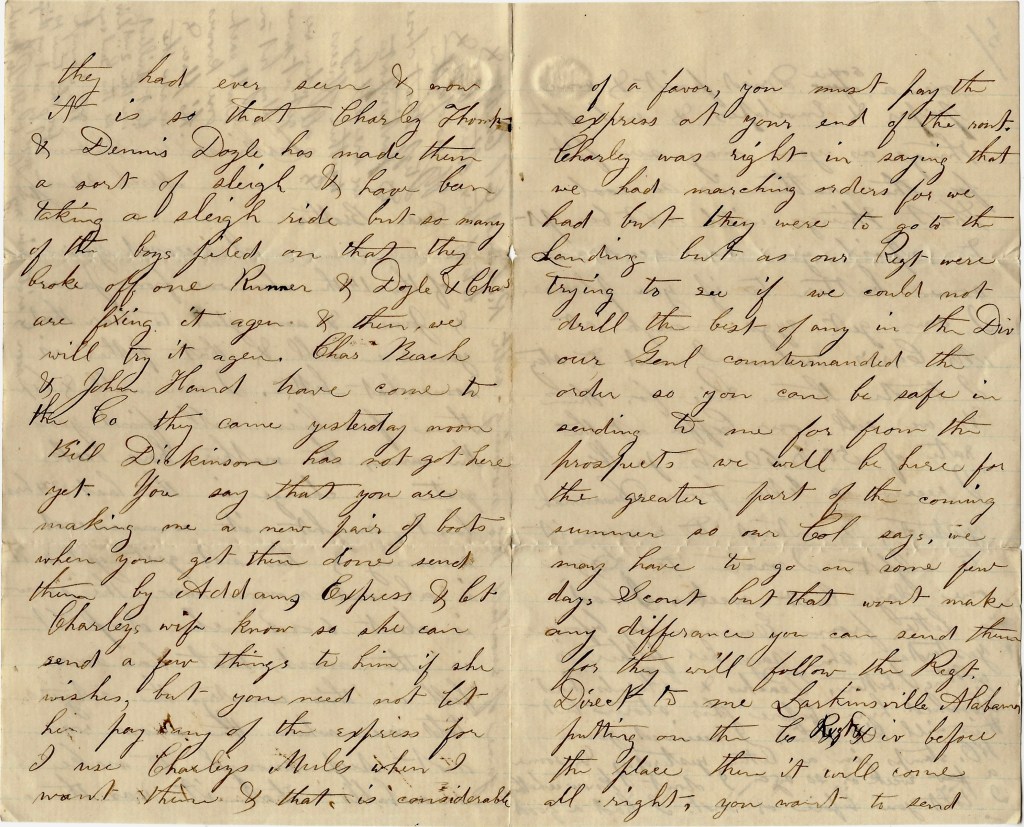 they had ever seen & now
it is so that Charley Thomp
& Dennis Doyle has made them
a sort of sleigh & have ben
taking a sleigh ride but so many
of the boys piled on that they
broke off one Runner & Doyle & Chas
are fixing it agen & then we
will try it agen. Chas Beach
& John Hand have come to
the Co they came yesterday noon
Bill Dickinson has not got here
yet. You say that you are
making me a new pair of boots
when you get them done send
them by Addams Express & let
Charleys wife know so she can
send a few things to him if she
wishes, but you need not let
her pay any of the express for
I use Charleys Mules when I
want them & that is considerable
of a favor, you must pay the
express at your end of the rout.
Charley was right in saying that
we had marching orders for we
had but they were to go to the
Landing but as our Regt were
trying to see if we could not
drill the best of any in the Div
our Genl countermanded the
order so you can be safe in
sending to me for from the
prospects we will be here for
the greater part of the coming
summer so our Col says, we
may have to go on some few
days Scout but that wont make
any differance you can send them
for they will follow the Regt.
Direct to me Larkinsville Alabama
putting on the Co Regt Div before
the place then it will come
all right, you want to send